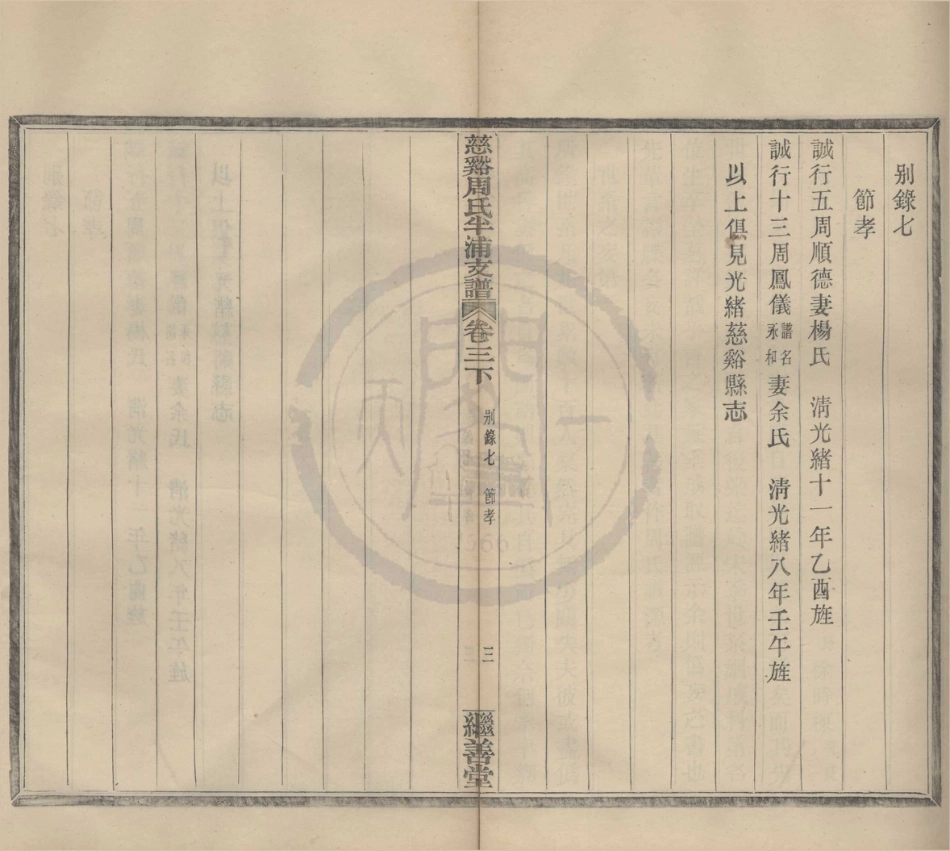 别錄七
節孝
誠行五周順德妻楊氏　淸光緒十一年乙酉旌
誠行十三周鳳儀譜名永和妻余氏　淸光緒八年壬午旌
以上俱見光緒慈谿縣志
慈谿周氏半浦支譜　卷三下　别錄七　節孝　三　繼善堂